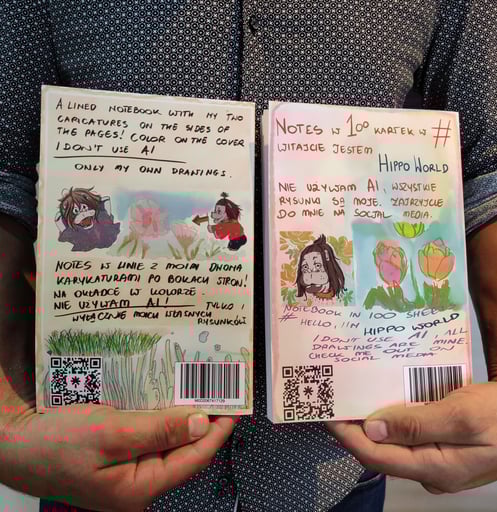 A LINED NOTEBOOK WITH MY TWO
CARICATURES ON THE SIDES OF
THE PAGES! COLOR ON THE COVER
I DON'T USE AI
ONLY MY OWN DRAWINGS.
NOTES W LINIE Z MOIMI DWOMA
KARYKATURAMI PO BOKACH STRON!
NA OKŁADCE W KOLORZE.
NIE UŻYWAM AI! TYLKO I
WYŁĄCZNIE MOICH WŁASNYCH
RYSUNKÓW
NOTES W 100 KARTEK W #
WITAJCIE JESTEM
HIPPO WORLD
NIE UŻYWAM AI, WSZYSTKIE
RYSUNKI SĄ MOJE. ZAJRZYJCIE
DO MNIE NA SOCJAL MEDIA.
NOTEBOOK IN 100 SHEET
# HELLO, I'M HIPPO WORLD
I DON'T USE AI, ALL
DRAWINGS ARE MINE.
CHECK ME OUT ON
SOCIAL MEDIA